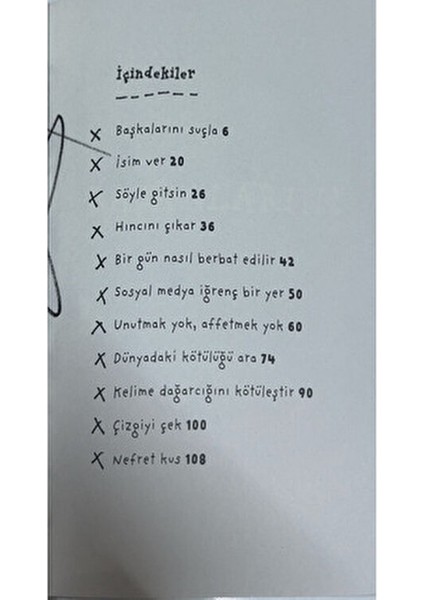 İçindekiler
Başkalarını suçla 6
İsim ver 20
Söyle gitsin 26
Hıncını çıkar 36
Bir gün nasıl berbat edilir 42
Sosyal medya iğrenç bir yer 50
Unutmak yok, affetmek yok 60
Dünyadaki kötülüğü ara 74
Kelime dağarcığını kötüleştir 90
Çizgiyi çek 100
Nefret kus 108